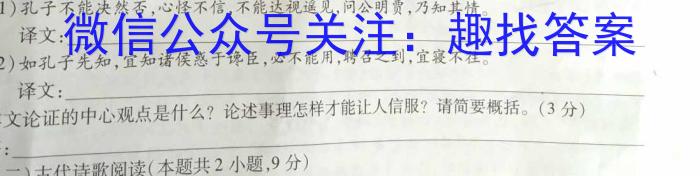 1)孔子不能决然否,心怪不信,不能达视遥见,问公明贾,乃知其情。
译文:
微信公众号关注:趣找答案
2)如孔子先知,宜知诸侯惑于谗臣,必不能用,聘召之到,宜寝不往。
译文:
文论证的中心观点是什么?论述事理怎样才能让人信服?请简要概括。(3分)
:
二)古代诗歌阅读(本题共2小题,9分)